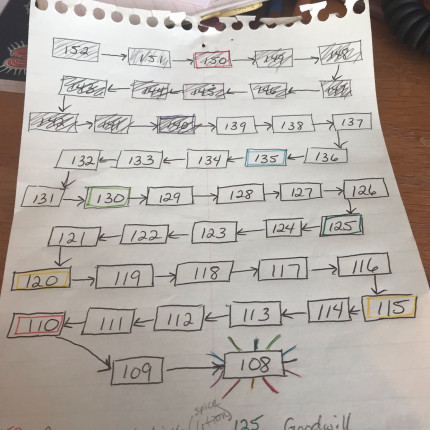 152 151 150 149 148
143 144 145 146
140 139 138 137
132 133 134 135 136
131 130 129 128 127 126
121 122 123 124 125
120 119 118 117 116
110 111 112 113 114 115
109 108
spice
125 Goodwill